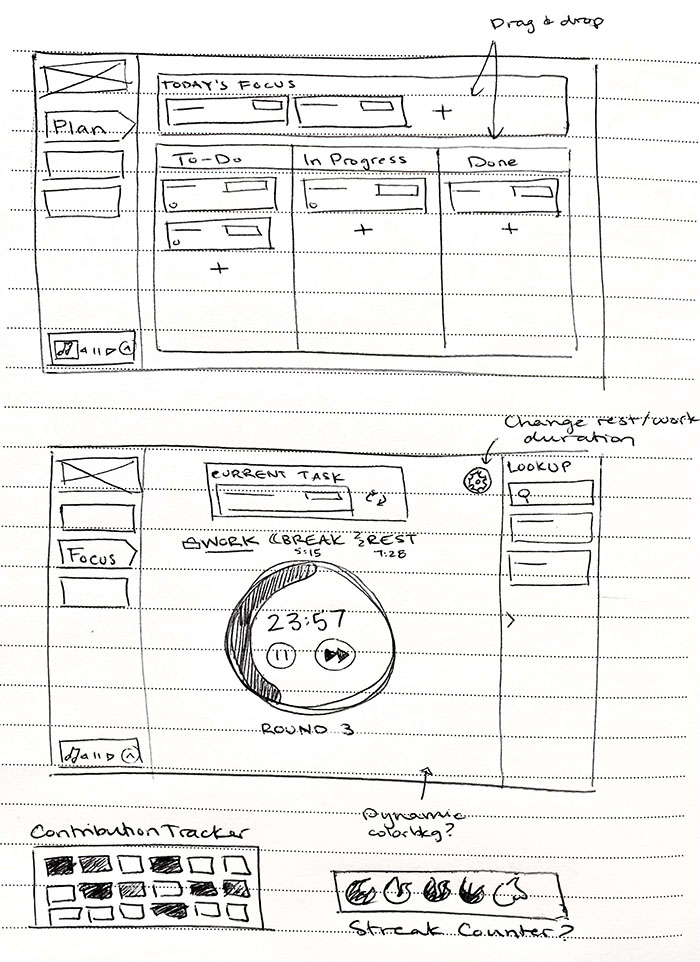 Drag & drop
TODAY'S FOCUS
+
Plan
To-Do
In Progress
Done
+
+
+
Change rest/work
duration
LOOKUP
CURRENT TASK
WORK
BREAK
REST
5:15
7:28
Focus
23:57
ROUND 3
Dynamic
color bkg?
Contribution Tracker
Streak Counter?